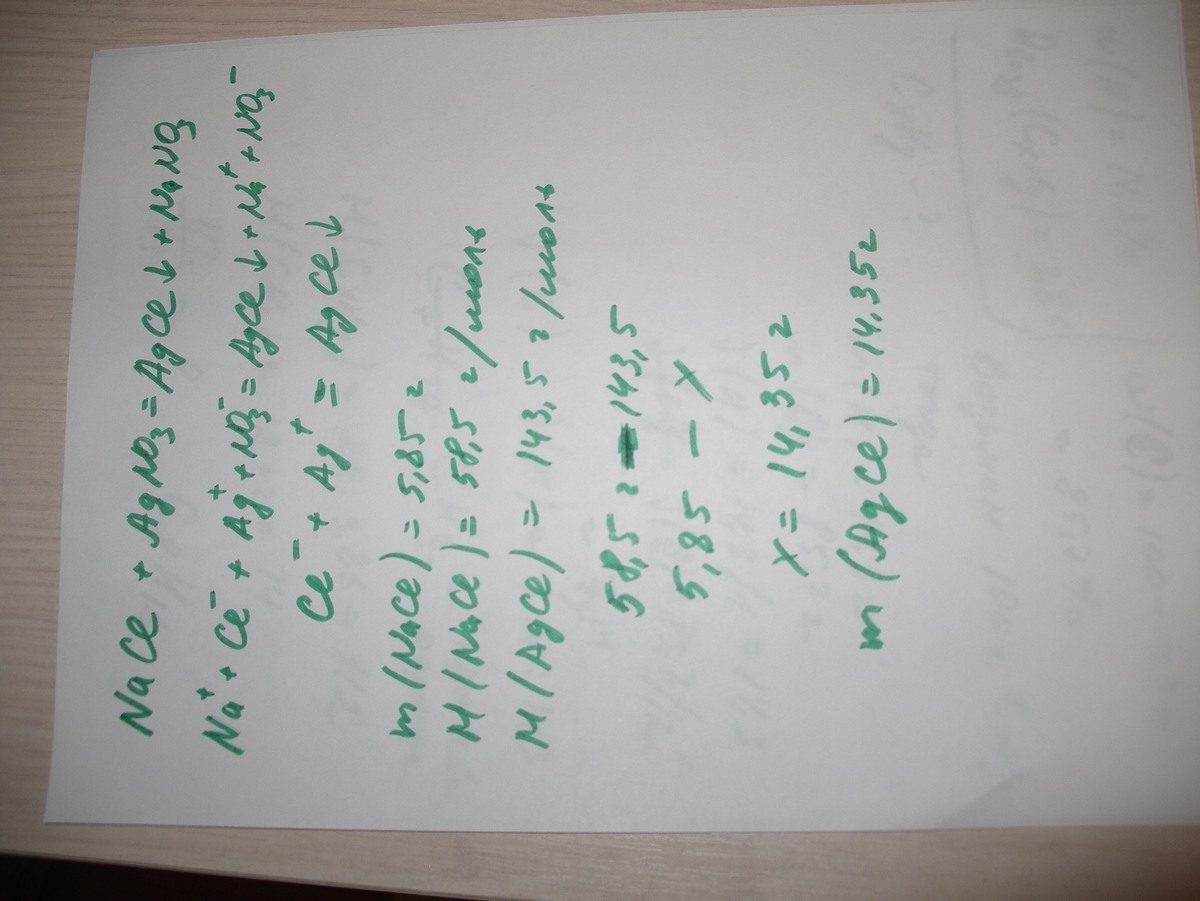 NaCl + AgNO₃ = AgCl↓ + NaNO₃
Na⁺ + Cl⁻ + Ag⁺ + NO₃⁻ = AgCl↓ + Na⁺ + NO₃⁻
Cl⁻ + Ag⁺ = AgCl↓
m(NaCl) = 5,85 г
M(NaCl) = 58,5 г/моль
M(AgCl) = 143,5 г/моль
58,5 г – 143,5
5,85 – x
x = 14,35 г
m(AgCl) = 14,35 г